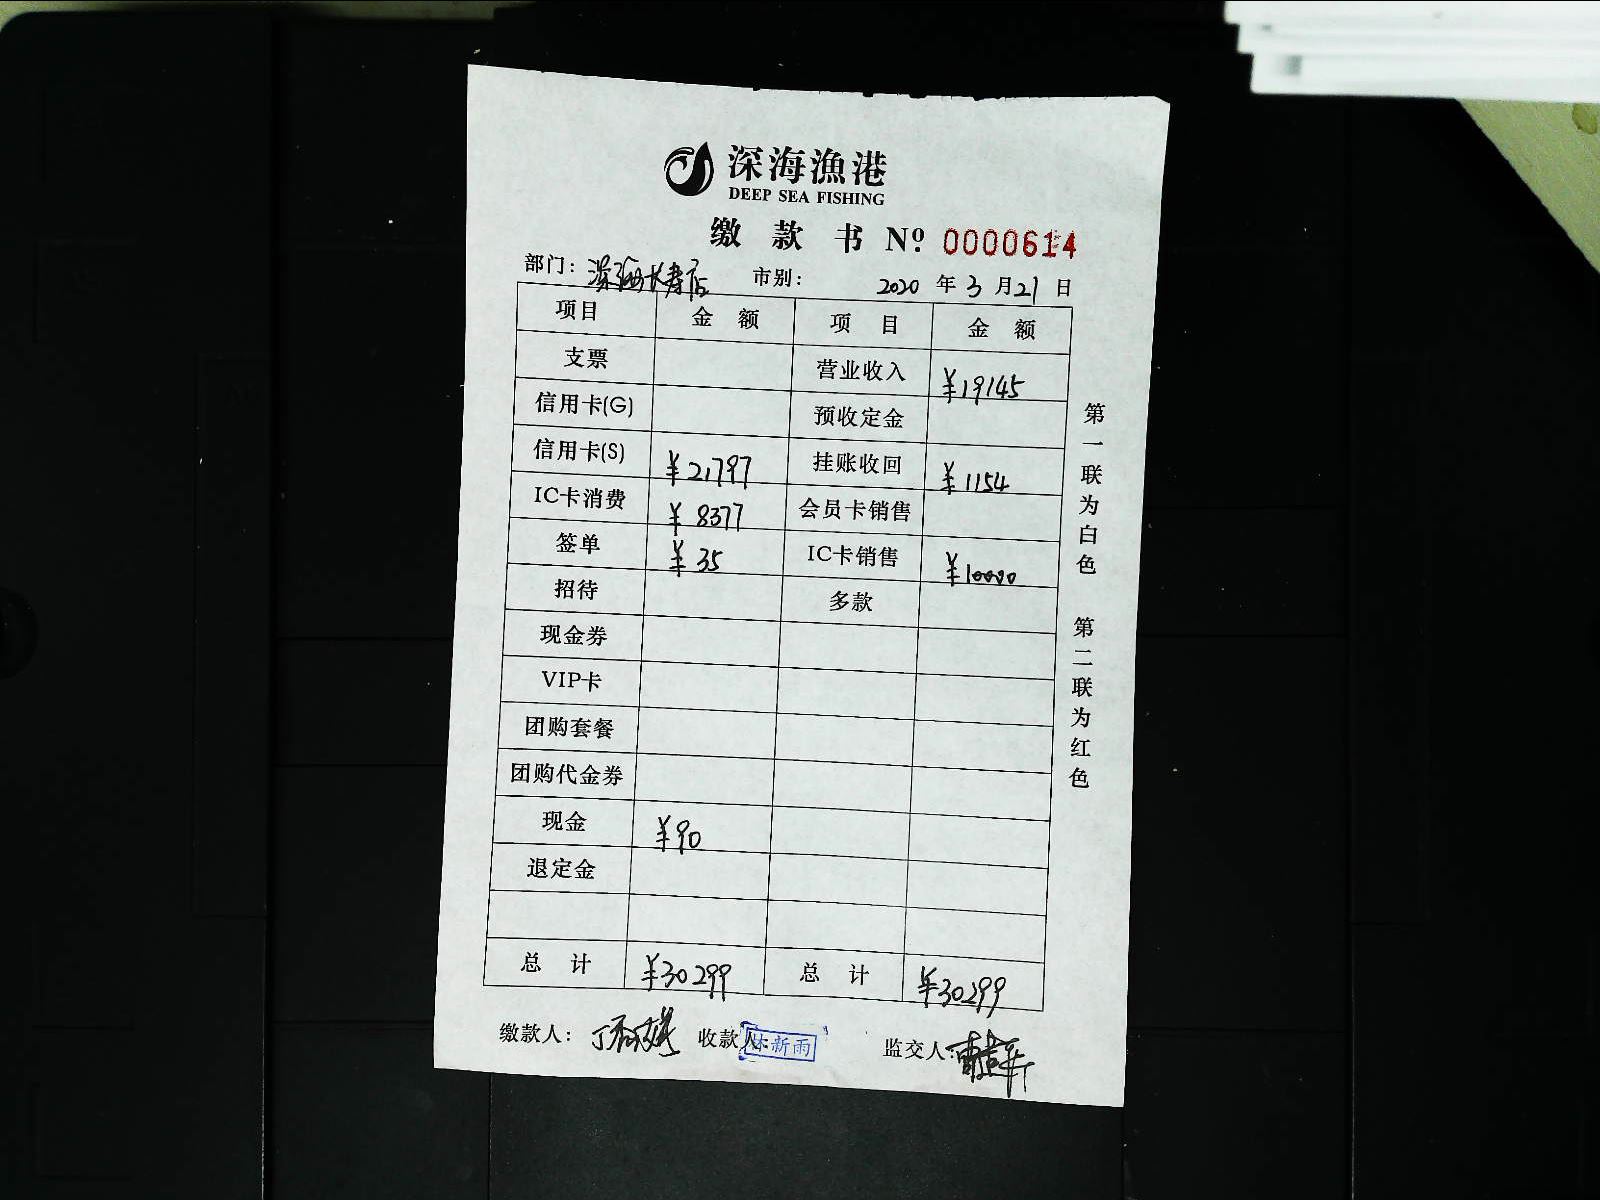 深海漁港
DEEP SEA FISHING
缴款书 Nº 0000614
部门：深海长寿店 市别： 2020 年 3 月 21 日
项目 金额 项目 金额
支票 营业收入 ¥19145
信用卡(G) 预收定金
信用卡(S) ¥21797 挂账收回 ¥1154
IC卡消费 ¥8377 会员卡销售
签单 ¥35 IC卡销售 ¥10000
招待 多款
现金券
VIP卡
团购套餐
团购代金券
现金 ¥90
退定金
总计 ¥30299 总计 ¥30299
缴款人： 收款人： 林新雨 监交人：
第一联为白色 第二联为红色